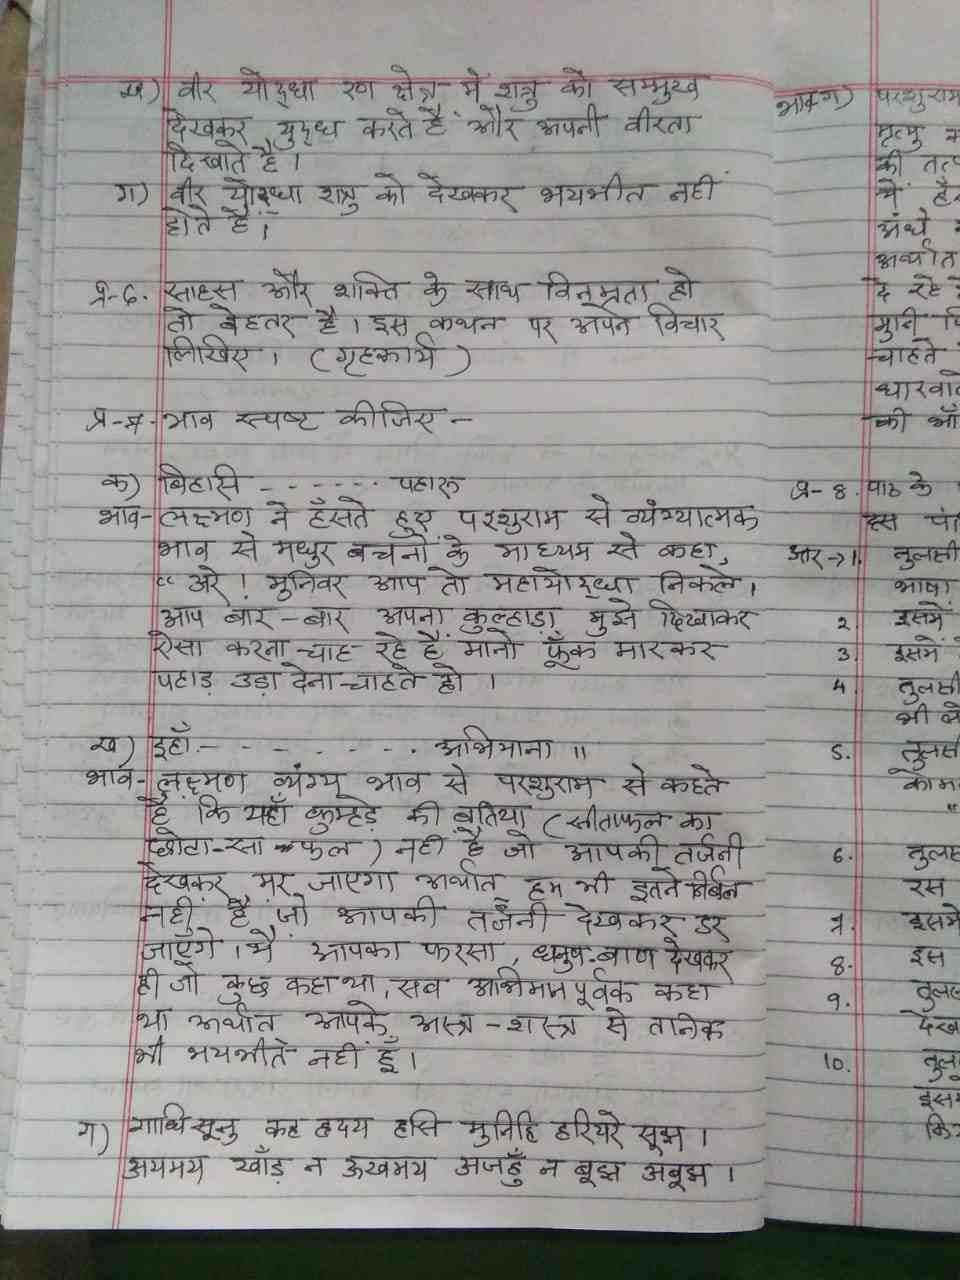 ख) वीर योद्धा रण क्षेत्र में शत्रु को सम्मुख
देखकर युद्ध करते हैं और अपनी वीरता
दिखाते है।
ग) वीर योद्धा शत्रु को देखकर भयभीत नहीं
होते हैं।
प्र-6. साहस और शक्ति के साथ विनम्रता हो
तो बेहतर है। इस कथन पर अपने विचार
लिखिए। (गृहकार्य)
प्र-7. भाव स्पष्ट कीजिए -
क) बिहासि - - - - - - . पहारू
भाव- लक्ष्मण ने हँसते हुए परशुराम से व्यंग्यात्मक
भाव से मधुर बचनों के माध्यम से कहा,
“ अरे ! मुनिवर आप तो महायोद्धा निकले।
आप बार-बार अपना कुल्हाड़ा मुझे दिखाकर
ऐसा करना चाह रहे हैं मानो फूँक मारकर
पहाड़ उड़ा देना चाहते हो ।
ख) इहाँ - - - - - - - . अभिमाना ॥
भाव- लक्ष्मण व्यंग्य भाव से परशुराम से कहते
है कि यहाँ कुम्हड़े की बतिया (सीताफल का
छोटा-सा फल) नहीं है जो आपकी तर्जनी
देखकर मर जाएगा अर्थात् हम भी इतने निर्बल
नहीं हैं जो आपकी तर्जनी देखकर डर
जाएँगे। मैं आपका फरसा, धनुष-बाण देखकर
ही जो कुछ कहा था, सब अभिमान पूर्वक कहा
था अर्थात आपके अस्त्र-शस्त्र से तनिक
भी भयभीत नहीं हूँ।
ग) गाधिसूनु कह हृदय हसि मुनिहि हरियरे सूझ।
अयमय खाँड़ न ऊखमय अजहुँ न बूझ अबूझ ।
ग) परशुराम
मृत्यु
की
में
अंधे
अर्थात
दे रहे
मुनि
चाहते
धारवाले
की
प्र-8. पाठ के
इस
→ 1. तुलसी
भाषा
2. इसमें
3. इसमें
4. तुलसी
भी
5. तुलसी
6.
रस
7. इसमें
8. इस
9.
देख
10.